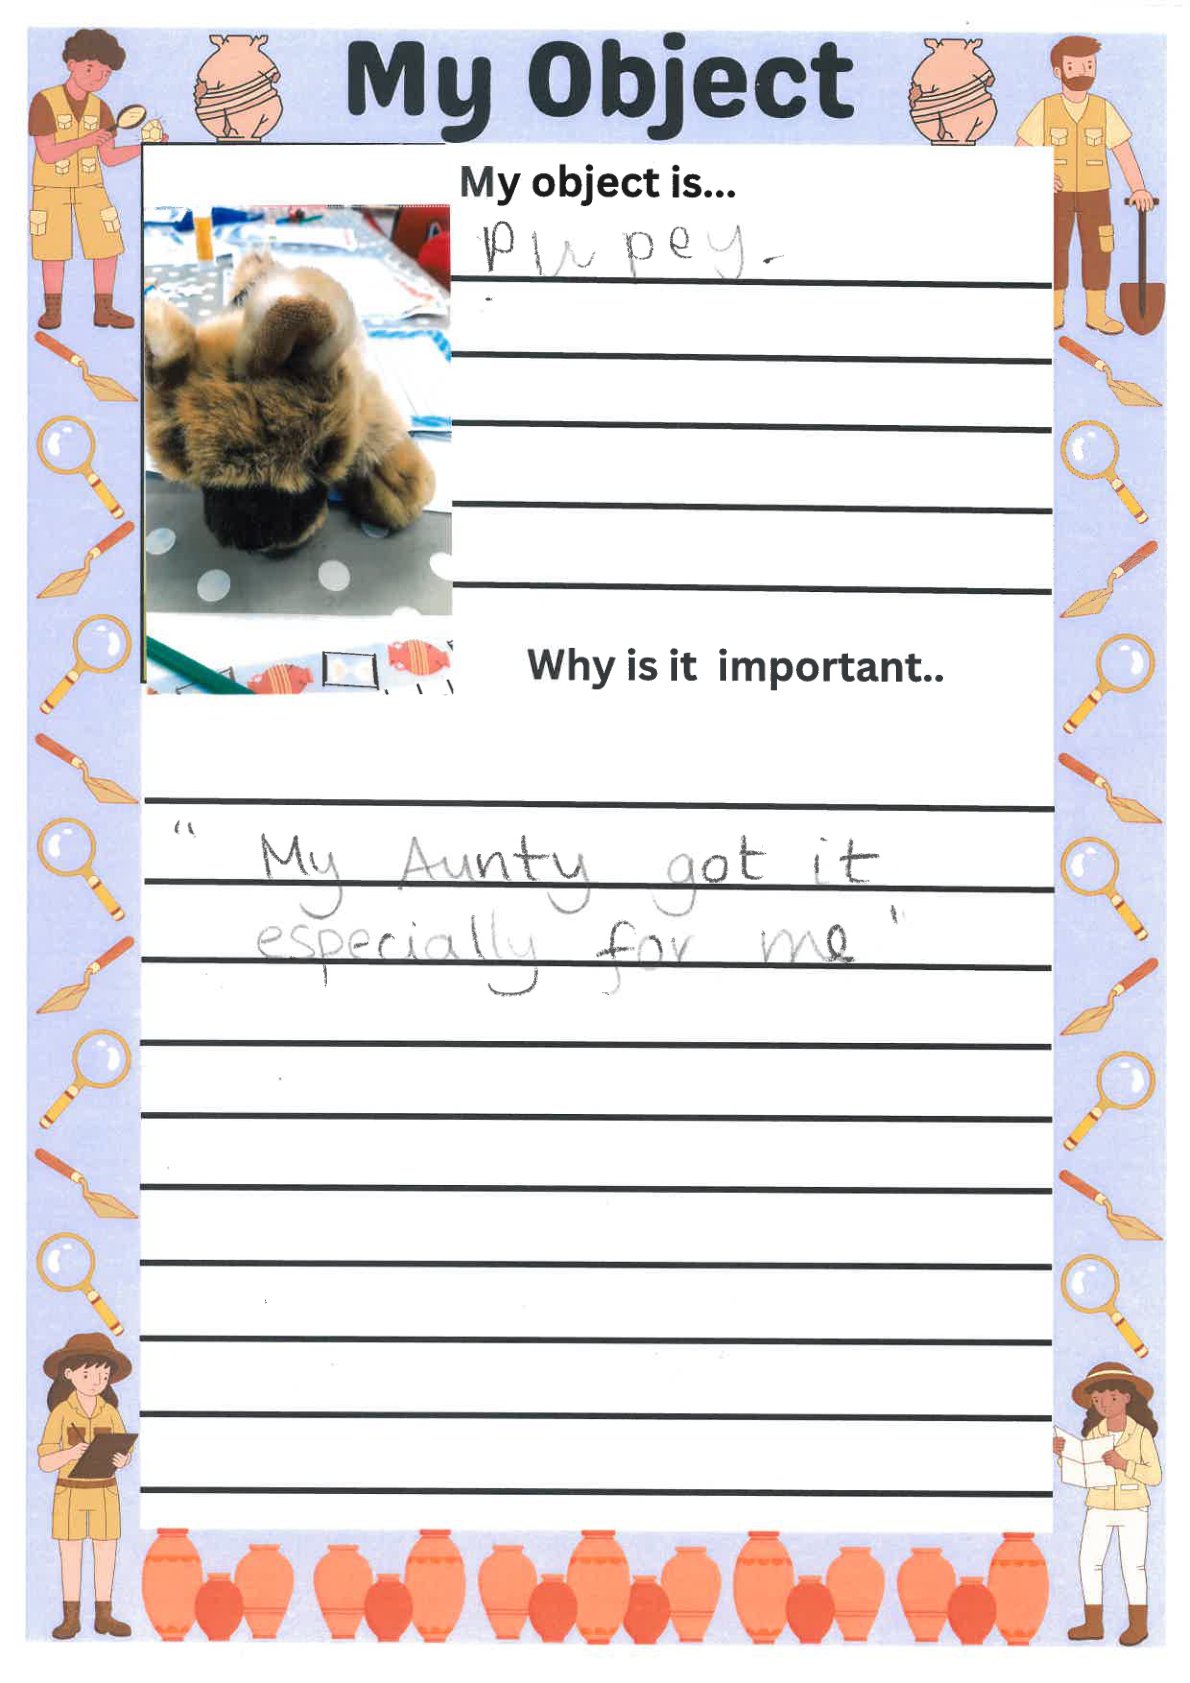 My Object
My object is...
Why is it important..
" My Aunty got it
especially for me "